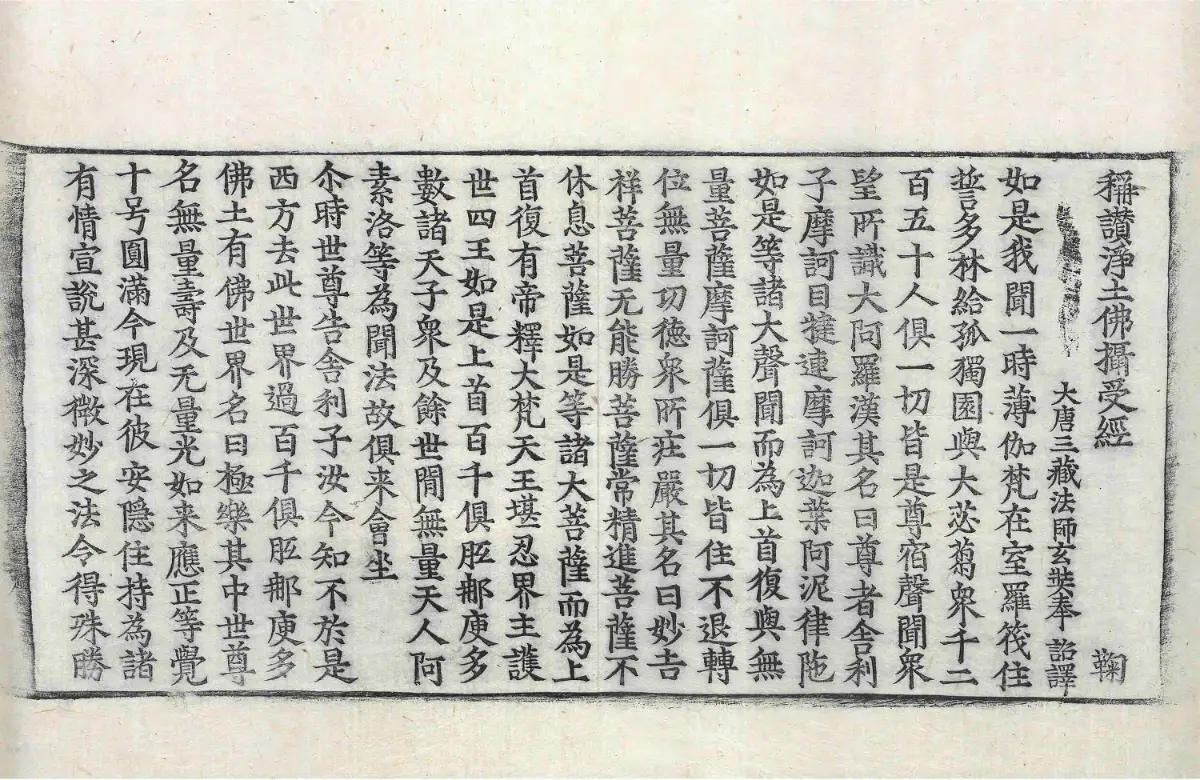 稱讃淨土佛攝受經　鞠
大唐三藏法師玄奘奉　詔譯
如是我聞一時薄伽梵在室羅筏住
誓多林給孤獨園與大苾蒭衆千二
百五十人俱一切皆是尊宿聲聞衆
望所識大阿羅漢其名曰尊者舍利
子摩訶目揵連摩訶迦葉阿泥律陁
如是等諸大聲聞而為上首復與無
量菩薩摩訶薩俱一切皆住不退轉
位無量功德衆所莊嚴其名曰妙吉
祥菩薩无能勝菩薩常精進菩薩不
休息菩薩如是等諸大菩薩而為上
首復有帝釋大梵天王堪忍界主護
世四王如是上首百千俱胝那庾多
數諸天子衆及餘世閒無量天人阿
素洛等為聞法故俱来會坐
尒時世尊告舍利子汝今知不於是
西方去此世界過百千俱胝那庾多
佛土有佛世界名曰極樂其中世尊
名無量壽及无量光如来應正等覺
十号圓滿今現在彼安隱住持為諸
有情宣說甚深微妙之法令得殊勝